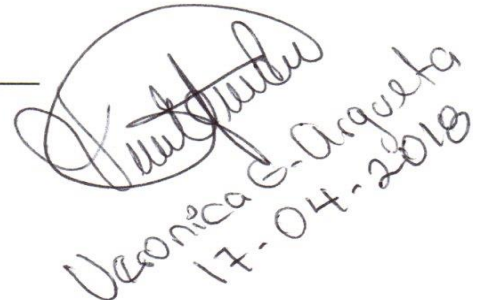 Veronica G. Argueta
17-04-2018